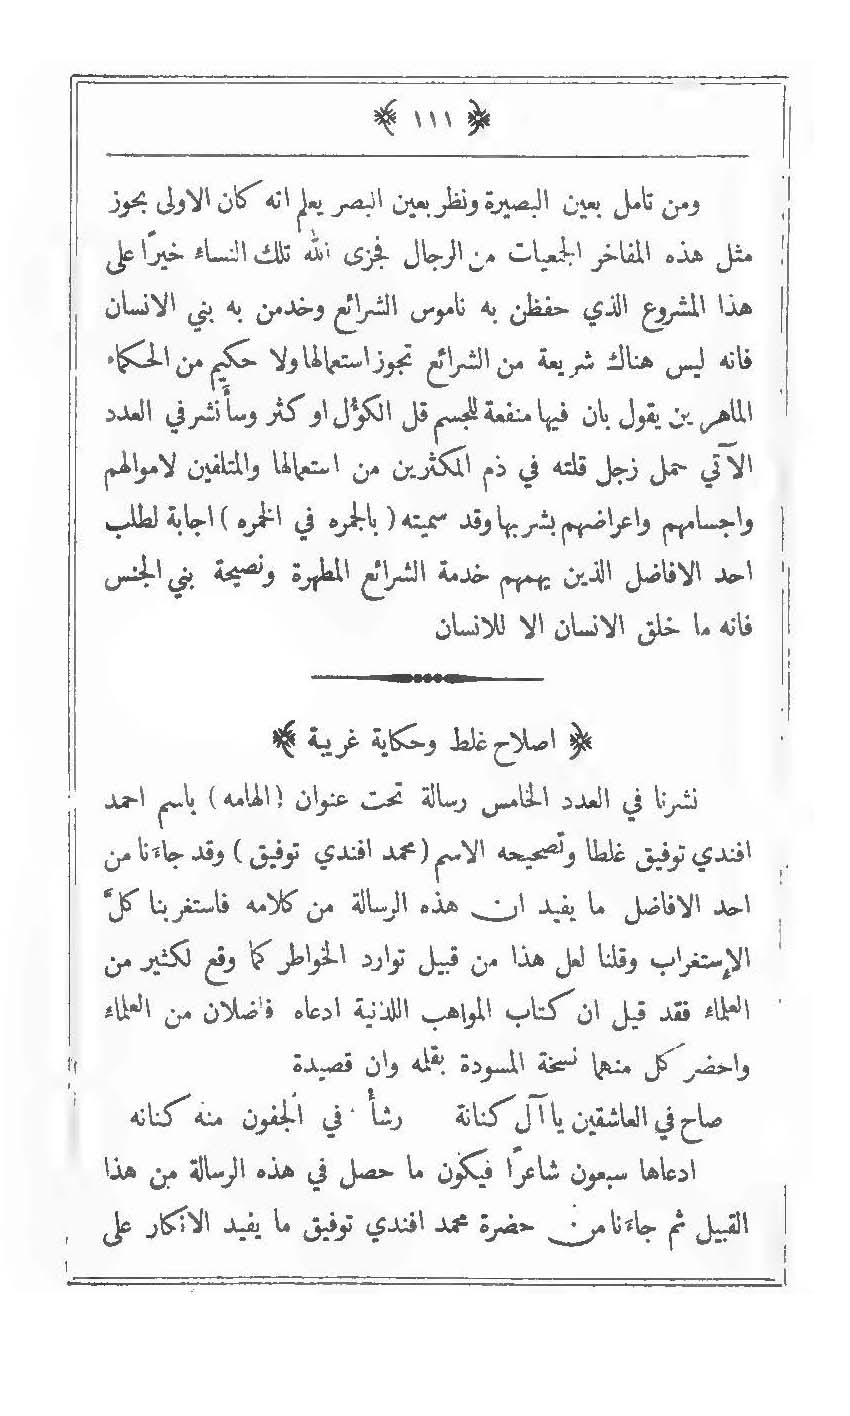 ﴿ ١١١ ﴾
ومن تامل بعين البصيرة ونظر بعين البصر يعلم انه كان الاولى بحوز
مثل هذه المفاخر الجمعيات من الرجال فجزى الله تلك النساء خيرًا على
هذا المشروع الذي حفظن به ناموس الشرائع وخدمن به بني الانسان
فانه ليس هناك شريعة من الشرائع تجوز استعمالها ولا حكيم من الحكماء
الماهرين يقول بان فيها منفعة للجسم قل الكؤل او كثر وسأنشر في العدد
الآتي حمل زجل قلته في ذم المكثرين من استعمالها والمتلفين لاموالهم
واجسامهم واعراضهم بشربها وقد سميته ( بالجمره في الخمره ) اجابة لطلب
احد الافاضل الذين يهمهم خدمة الشرائع المطهرة ونصيحة بني الجنس
فانه ما خلق الانسان الا للانسان
﴿ اصلاح غلط وحكاية غريبة ﴾
نشرنا في العدد الخامس رسالة تحت عنوان ( الهامه ) باسم احمد
افندي توفيق غلطا وتصحيحه الاسم ( محمد افندي توفيق ) وقد جاءنا من
احد الافاضل ما يفيد ان هذه الرسالة من كلامه فاستغربنا كلَّ
الإستغراب وقلنا لعل هذا من قبيل توارد الخواطر كما وقع لكثير من
العلماء فقد قيل ان كتاب المواهب اللدنية ادعاه فاضلان من العلماء
واحضر كل منهما نسخة المسودة بقلمه وان قصيدة
صاح في العاشقين يا آل كنانة رشأ في الجفون منه كنانه
ادعاها سبعون شاعرًا فيكون ما حصل في هذه الرسالة من هذا
القبيل ثم جاءنا من حضرة محمد افندي توفيق ما يفيد الانكار على